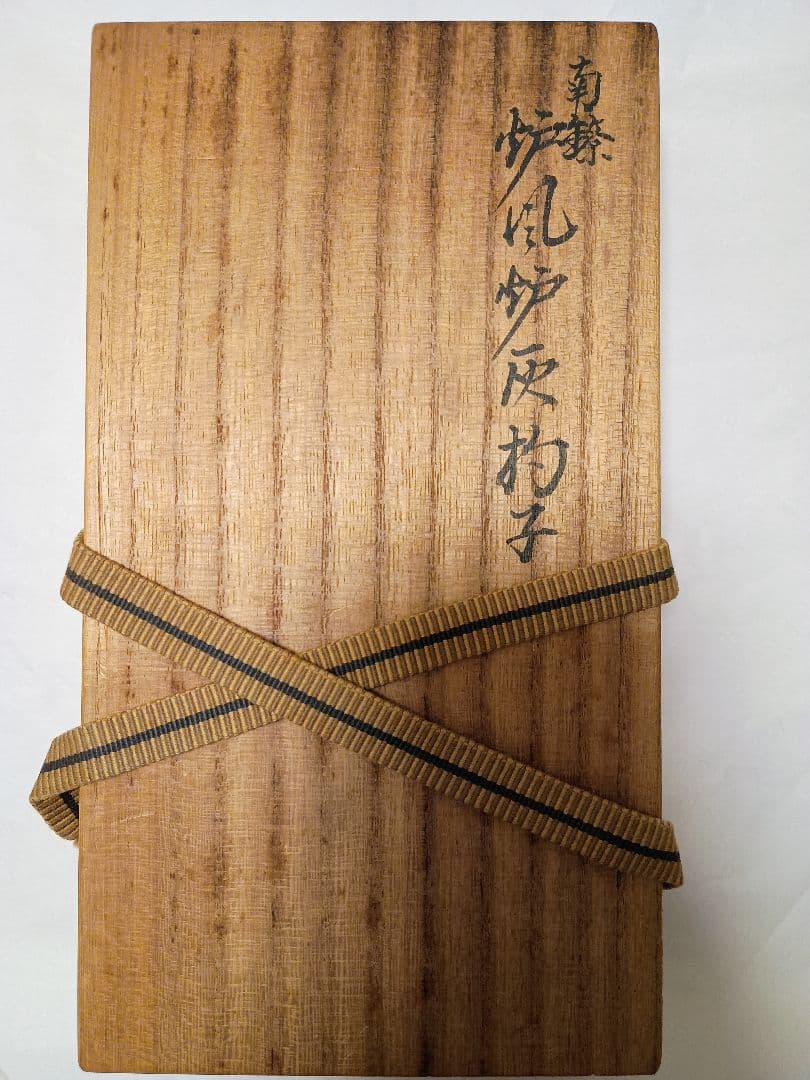 南鐐
炉風炉灰杓子